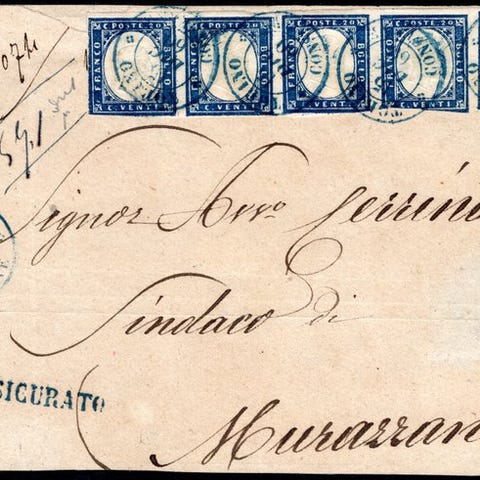 C. POSTE 20 C. POSTE 20 C. POSTE 20 C. POSTE 20
FRANCO BOLLO FRANCO BOLLO FRANCO BOLLO FRANCO BOLLO
C. VENTI C. VENTI C. VENTI C. VENTI
Signor Avvo Cerrin
Sindaco di
SICURATO
Murazzan